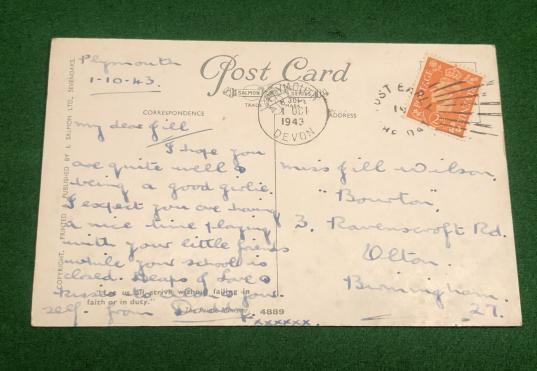 Plymouth
1-10-43.
Post Card
SALMON SERIES
TRADE
CORRESPONDENCE
ADDRESS
PLYMOUTH
1 OCT
1943
DEVON
POST EARLY
POSTAGE
COPYRIGHT. PRINTED & PUBLISHED BY J. SALMON LTD., SEVENOAKS.
My dear Jill
I hope you
are quite well &
being a good girlie.
I expect you are having
a nice time playing
with your little friends
while your school is
closed. Heaps of Love &
kisses to your
self. from Daddy.
xxxxxx.
"Let us all strive without failing in
faith or in duty."
The Prime Minister
4889
Miss Jill Wilson.
"Bourton".
3. Ravenscroft Rd.
Olton.
Birmingham.
27.